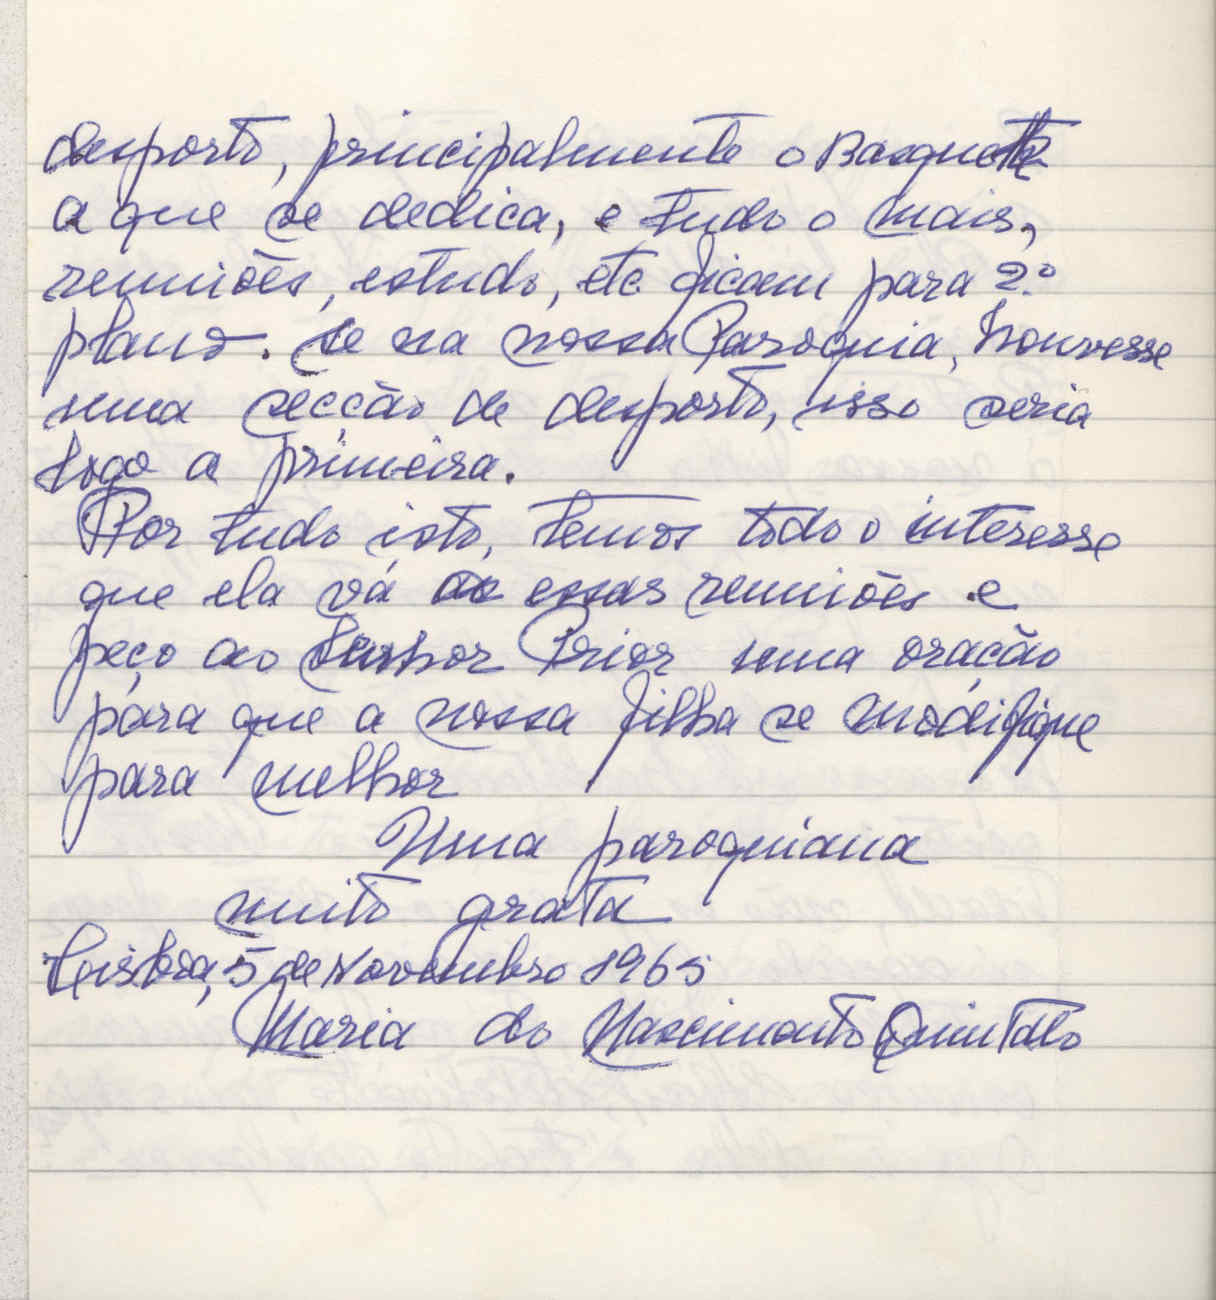 desporto, principalmente o Basquete
a que se dedica, e tudo o mais,
reuniões, estudo, etc. ficam para 2.º
plano. Se na nossa Paroquia, houvesse
uma secção de desporto, isso seria
logo a primeira.
Por tudo isto, temos todo o interesse
que ela vá as essas reuniões e
peço ao Senhor Prior uma oração
para que a nossa filha se modifique
para melhor
Uma paroquiana
muito grata
Lisboa, 5 de Novembro 1965
Maria do Nascimento Quintato